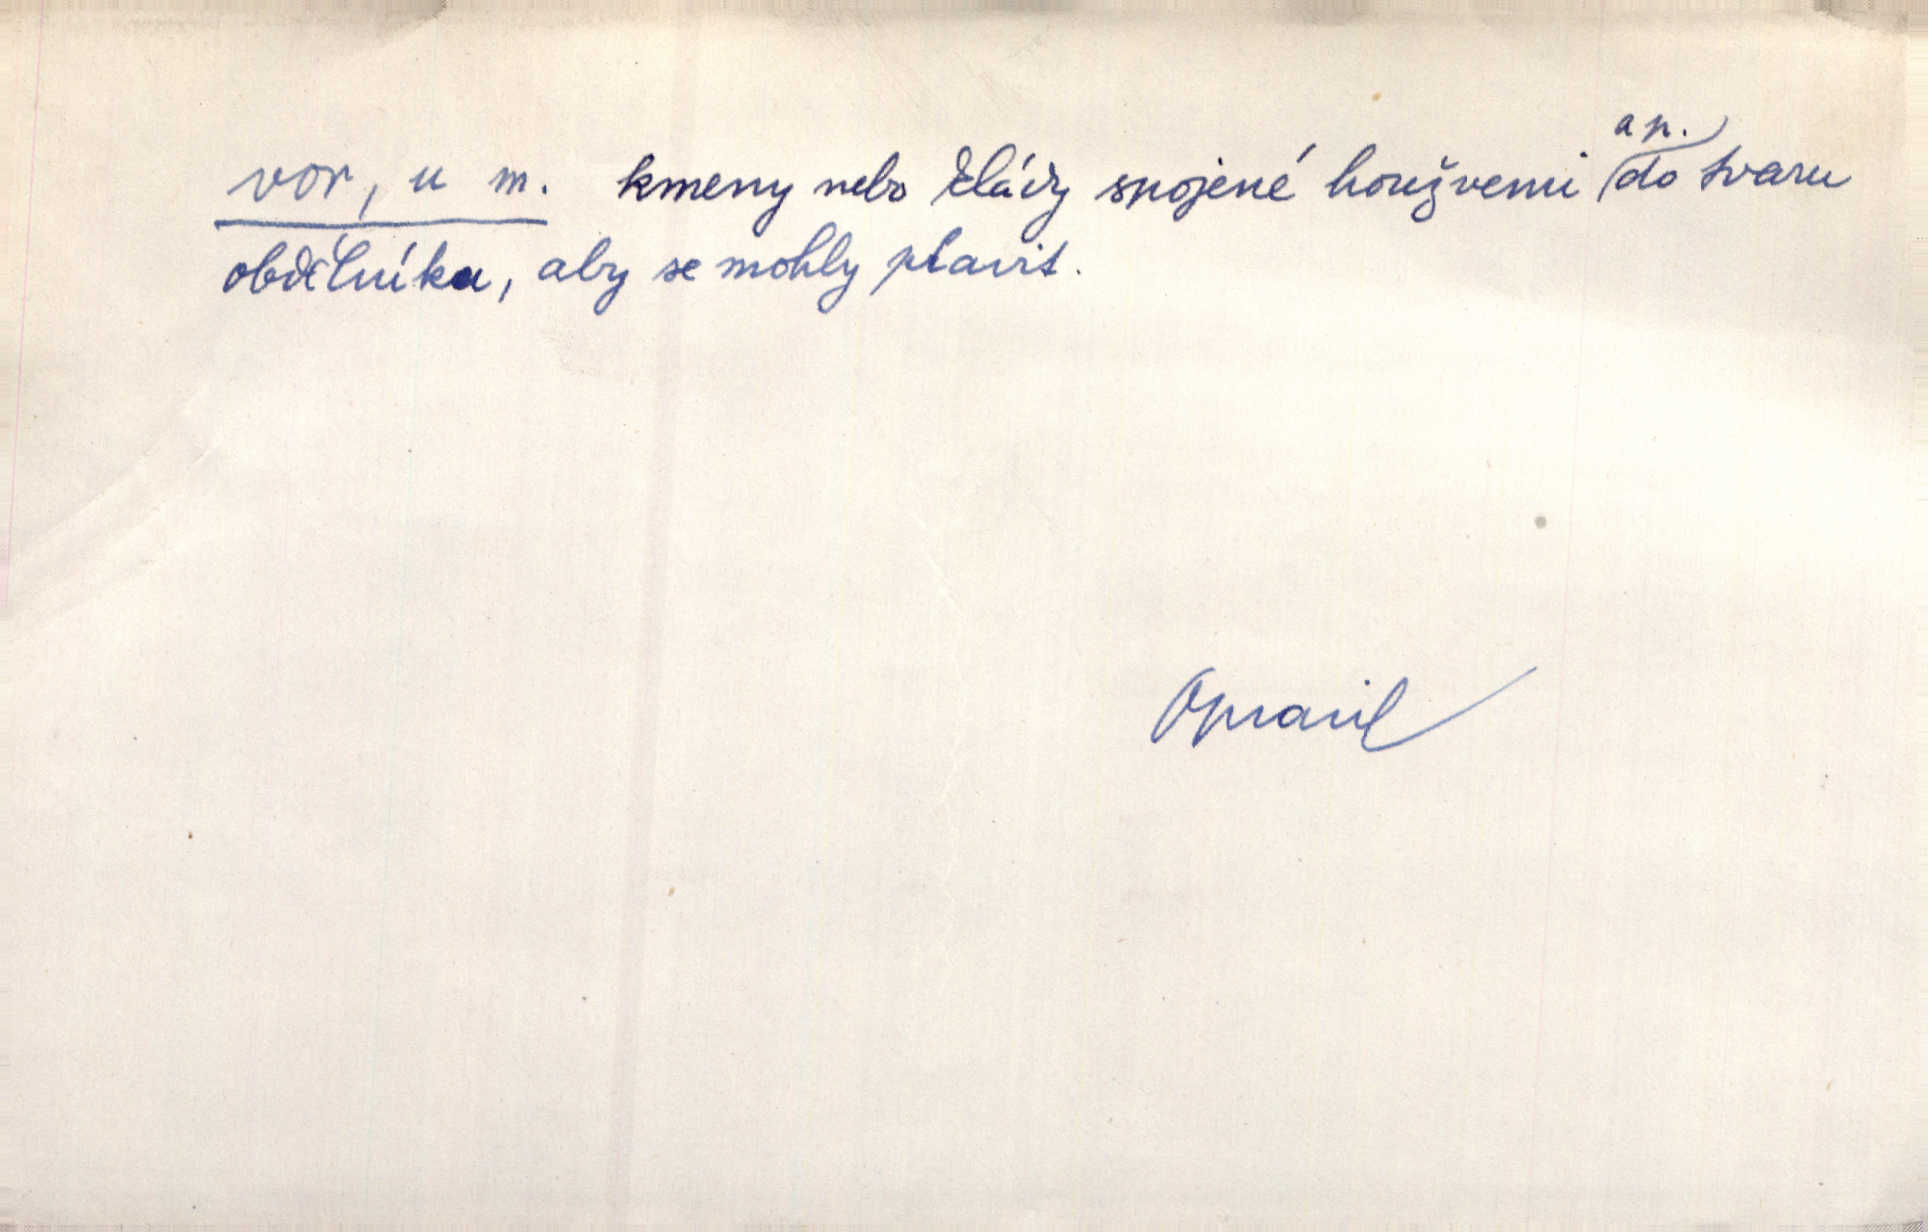 vor, u m. kmeny nebo klády spojené houžvemi ap. do tvaru
obdélníka, aby se mohly plavit.
Opravil